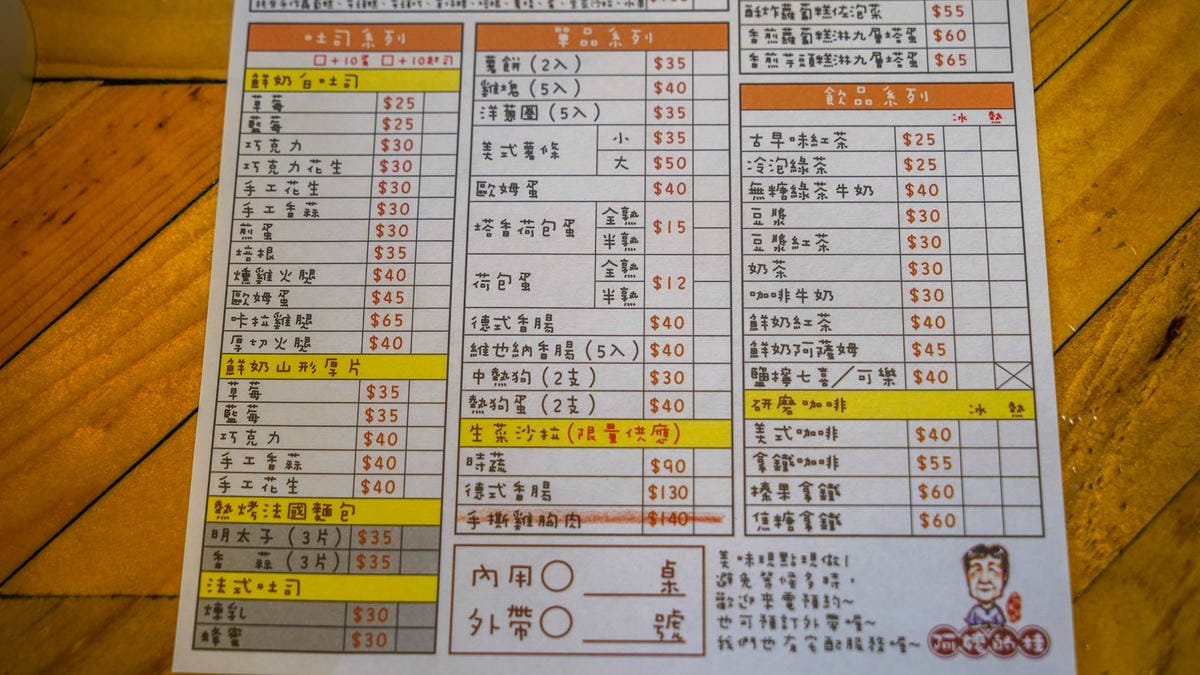 吐司系列
□+10蛋 □+10起司
鮮奶白吐司
草莓 $25
藍莓 $25
巧克力 $30
巧克力花生 $30
手工花生 $30
手工香蒜 $30
煎蛋 $30
培根 $35
燻雞火腿 $40
歐姆蛋 $45
咔拉雞腿 $65
厚切火腿 $40
鮮奶山形厚片
草莓 $35
藍莓 $35
巧克力 $40
手工香蒜 $40
手工花生 $40
熱烤法國麵包
明太子(3片) $35
香蒜(3片) $35
法式吐司
煉乳 $30
蜂蜜 $30
單品系列
薯餅(2入) $35
雞塊(5入) $40
洋蔥圈(5入) $35
美式薯條 小 $35
大 $50
歐姆蛋 $40
塔香荷包蛋 全熟 半熟 $15
荷包蛋 全熟 半熟 $12
德式香腸 $40
維也納香腸(5入) $40
中熱狗(2支) $30
熱狗蛋(2支) $40
生菜沙拉(限量供應)
時蔬 $90
德式香腸 $130
手撕雞胸肉 $140
內用○ 桌
外帶○ 號
酥炸蘿蔔糕佐泡菜 $55
香煎蘿蔔糕淋九層塔蛋 $60
香煎芋頭糕淋九層塔蛋 $65
飲品系列
冰 熱
古早味紅茶 $25
冷泡綠茶 $25
無糖綠茶牛奶 $40
豆漿 $30
豆漿紅茶 $30
奶茶 $30
咖啡牛奶 $30
鮮奶紅茶 $40
鮮奶阿薩姆 $45
鹽檸七喜/可樂 $40
研磨咖啡 冰 熱
美式咖啡 $40
拿鐵咖啡 $55
榛果拿鐵 $60
焦糖拿鐵 $60
美味現點現做!
避免等候多時,
歡迎來電預約~
也可預訂外帶喔~
我們也有宅配服務喔~